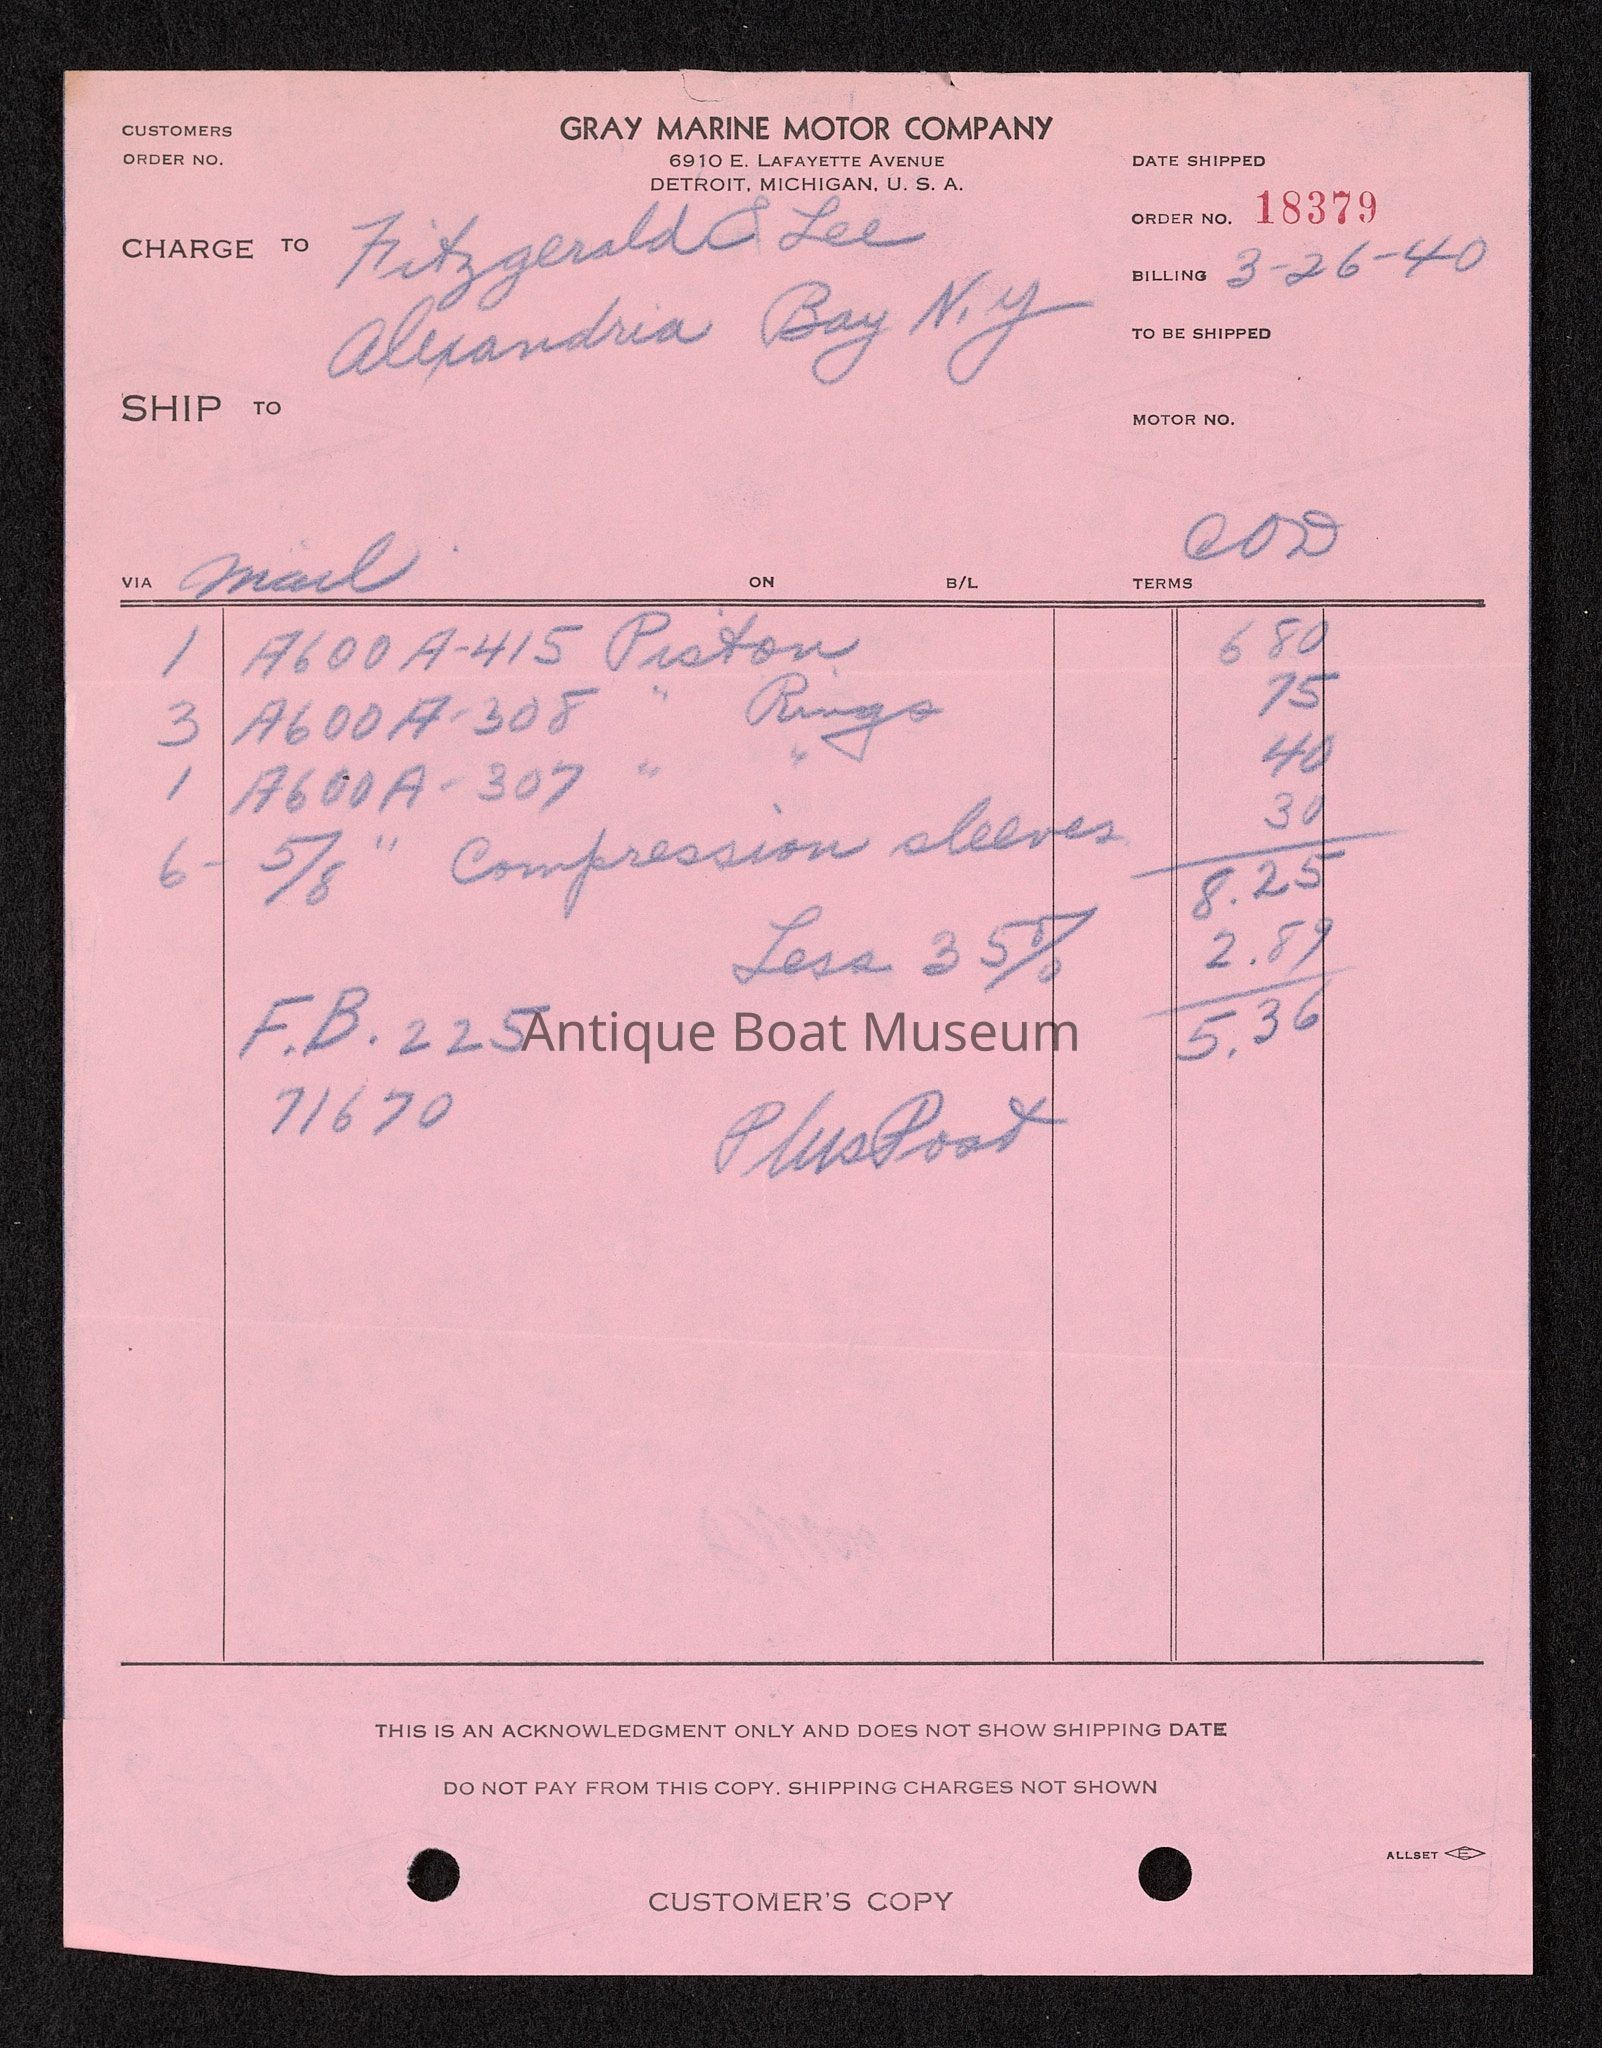 CUSTOMERS
ORDER NO.
GRAY MARINE MOTOR COMPANY
6910 E. LAFAYETTE AVENUE
DETROIT, MICHIGAN, U. S. A.
DATE SHIPPED
ORDER NO. 18379
CHARGE TO Fitzgerald & Lee
BILLING 3-26-40
Alexandria Bay N.Y
TO BE SHIPPED
SHIP TO
MOTOR NO.
COD
VIA Mail ON B/L TERMS
1 A600A-415 Piston 6 80
3 A600A-308 " Rings 75
1 A600A-307 " " 40
6- 5/8" Compression sleeves 30
8.25
Less 35% 2.89
F.B. 225 5.36
Antique Boat Museum
71670 Plus Post
THIS IS AN ACKNOWLEDGMENT ONLY AND DOES NOT SHOW SHIPPING DATE
DO NOT PAY FROM THIS COPY. SHIPPING CHARGES NOT SHOWN
ALLSET E
CUSTOMER'S COPY